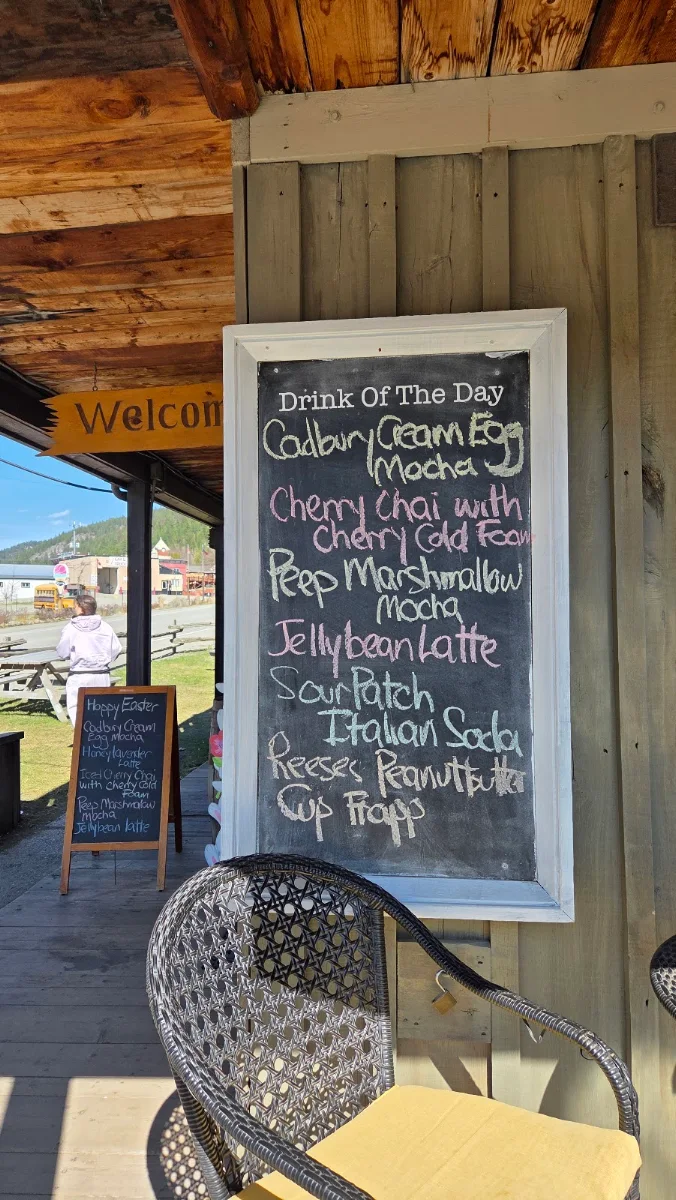 Welcom
Drink Of The Day
Cadbury Cream Egg
Mocha
Cherry Chai with
Cherry Cold Foam
Peep Marshmallow
Mocha
Jellybean Latte
Sour Patch
Italian Soda
Reeses Peanutbutter
Cup Frapp
Happy Easter
Cadbury Cream
Egg Mocha
Honey lavender
Latte
Iced Cherry Chai
with cherry Cold
Foam
Peep Marshmallow
mocha
Jellybean latte